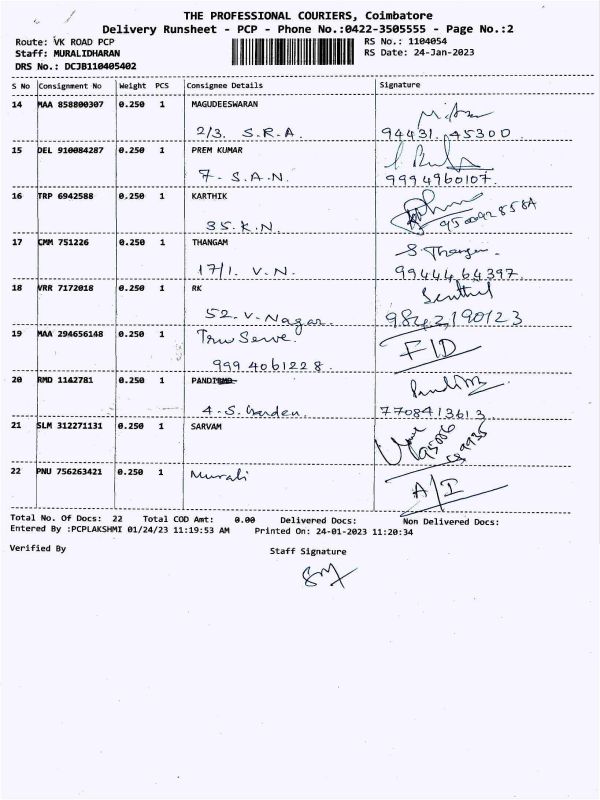 THE PROFESSIONAL COURIERS, Coimbatore
Delivery Runsheet - PCP - Phone No.:0422-3505555 - Page No.:2
Route: VK ROAD PCP RS No.: 1104054
Staff: MURALIDHARAN RS Date: 24-Jan-2023
DRS No.: DCJB110405402
S No Consignment No Weight PCS Consignee Details Signature
14 MAA 858800307 0.250 1 MAGUDEESWARAN
2/3. S.R.A. 94431 45300
15 DEL 910084287 0.250 1 PREM KUMAR
7. S.A.N. 9994960107.
16 TRP 6942588 0.250 1 KARTHIK
35.K.N.
17 CMM 751226 0.250 1 THANGAM
17/1. V.N. 99444 64397.
18 VRR 7172018 0.250 1 RK Senthil
52.V.Nagar. 9842190123
19 MAA 294656148 0.250 1 Tru Serve. F/D
999 4061228.
20 RMD 1142781 0.250 1
4.S.Garden. 7708413613
21 SLM 312271131 0.250 1 SARVAM
22 PNU 756263421 0.250 1 Murali A/I
Total No. Of Docs: 22 Total COD Amt: 0.00 Delivered Docs: Non Delivered Docs:
Entered By :PCPLAKSHMI 01/24/23 11:19:53 AM Printed On: 24-01-2023 11:20:34
Verified By Staff Signature